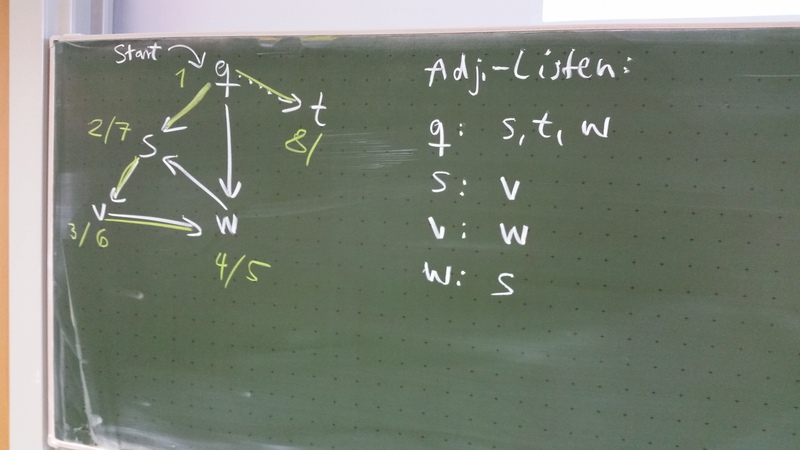 Start
1 q
t
2/7 s
8/
v w
3/6
4/5
Adj.-Listen:
q: s, t, w
s: v
v: w
w: s